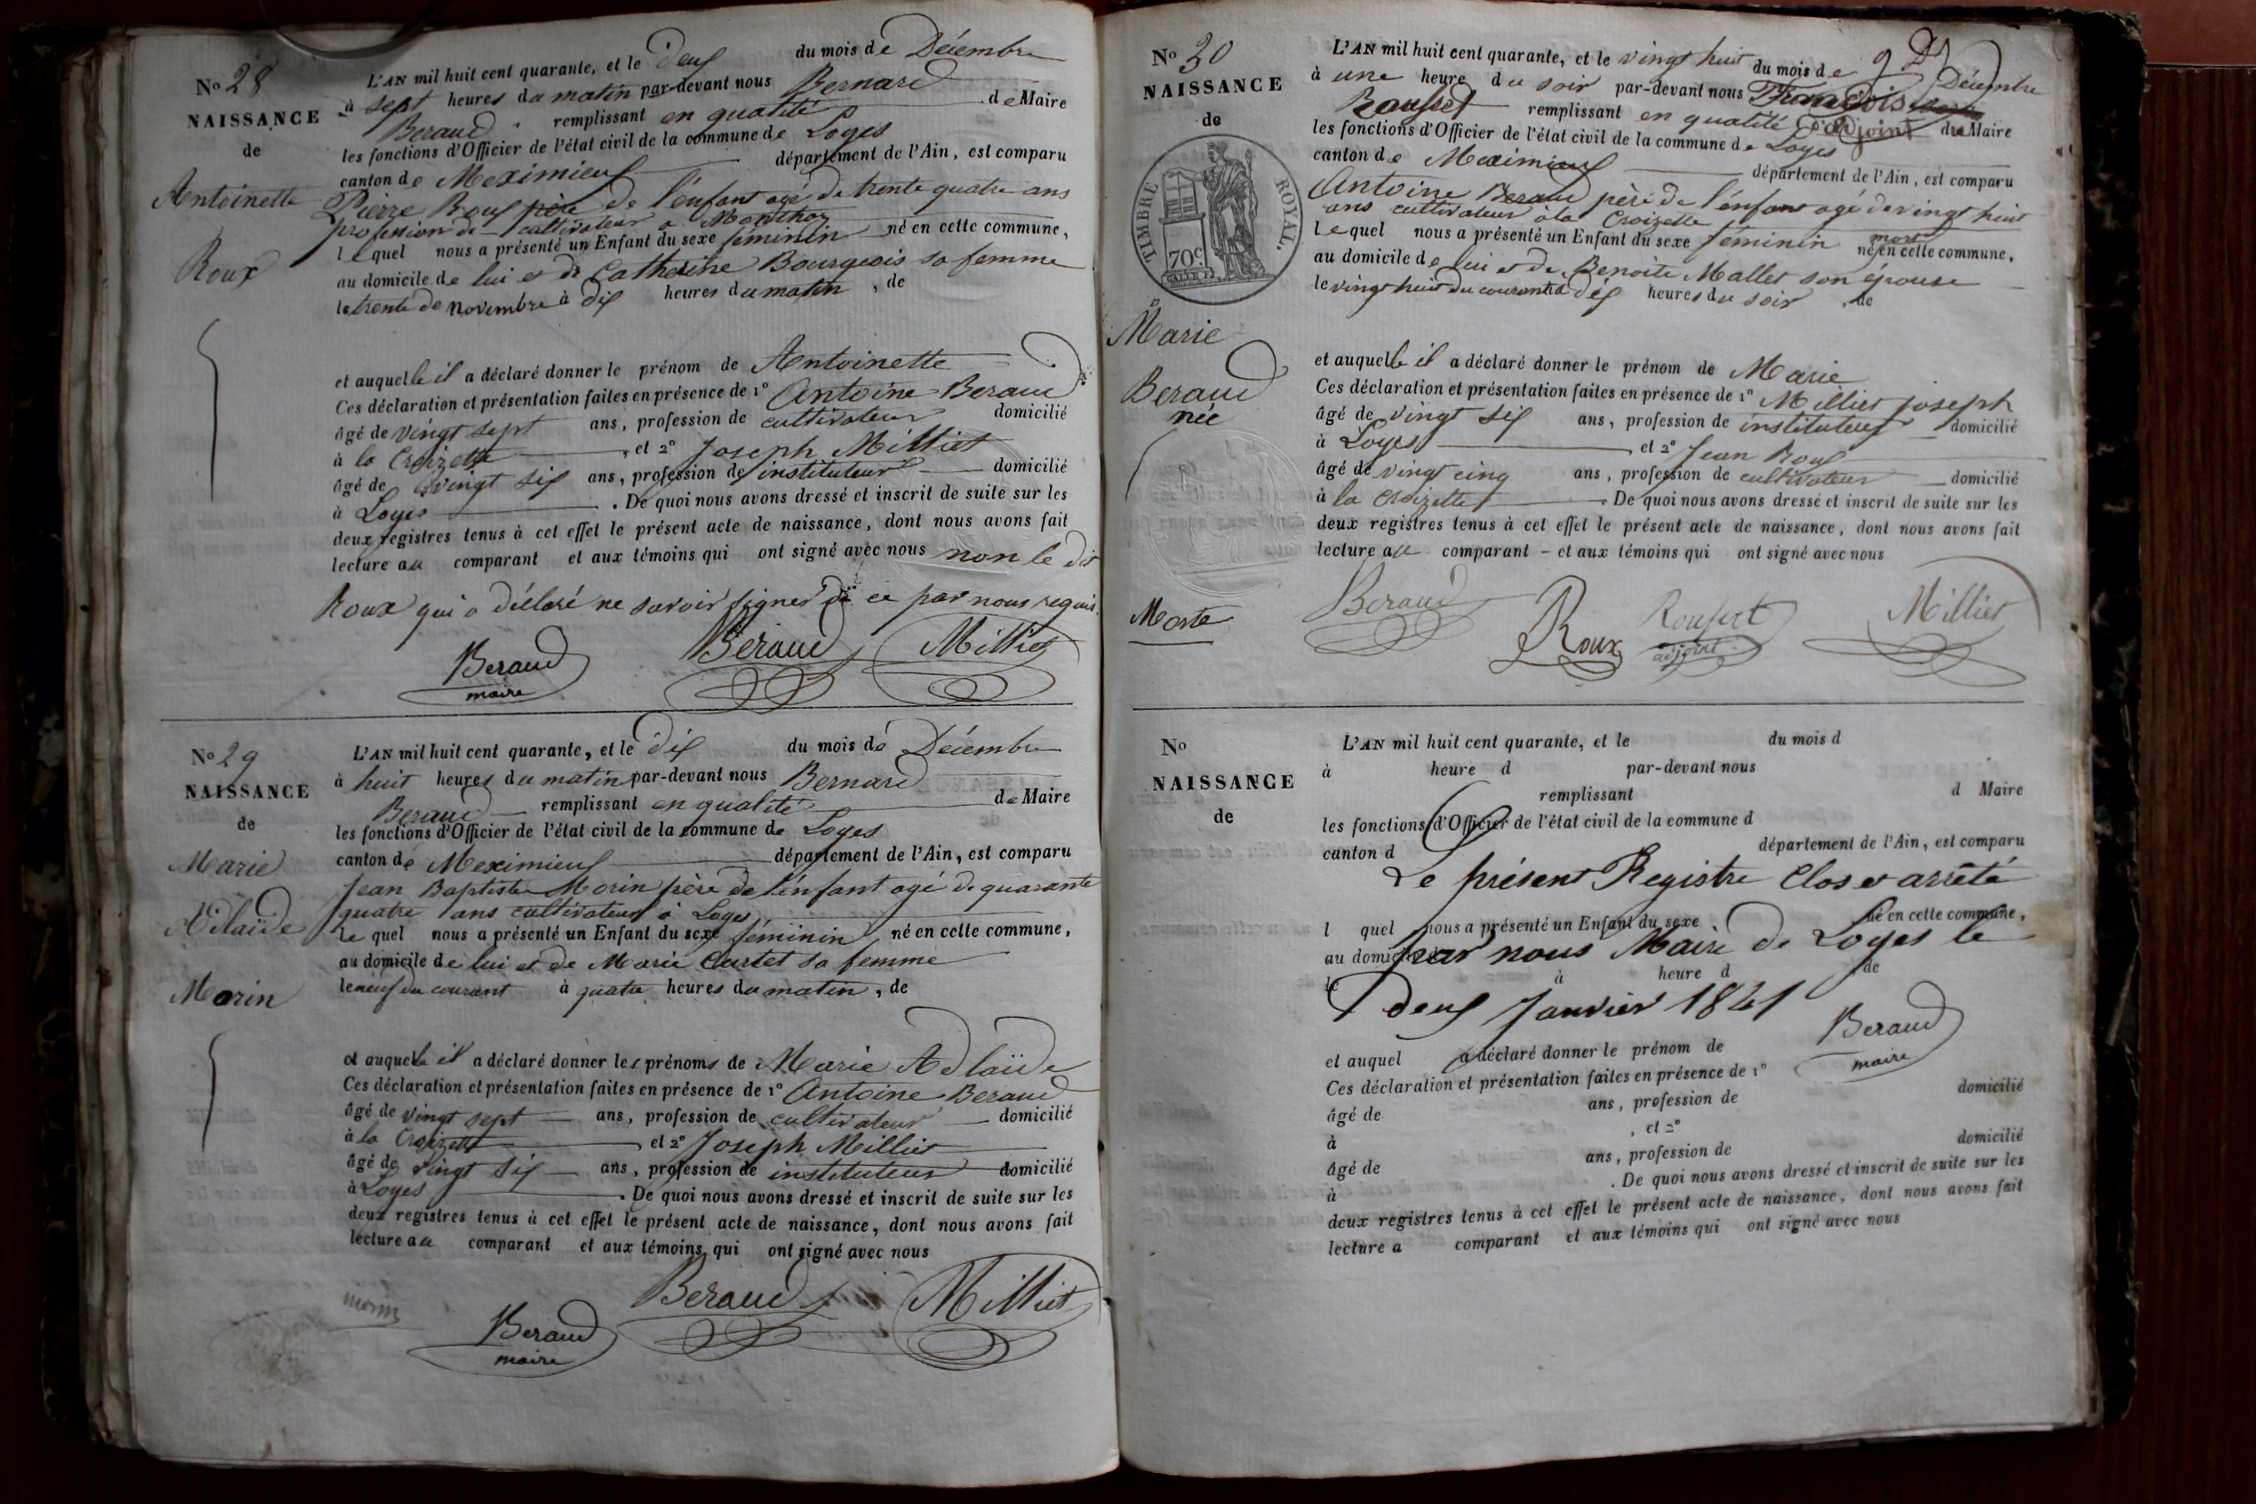 No 28
NAISSANCE
de
Antoinette
Roux
L'AN mil huit cent quarante, et le deux du mois de Décembre
à sept heures du matin par-devant nous Bernard
Beraud remplissant en qualité de Maire
les fonctions d'Officier de l'état civil de la commune de Loyes
canton de Meximieux département de l'Ain, est comparu
Pierre Roux père de l'enfant agé de trente quatre ans
profession de cultivateur a Monthoz
lequel nous a présenté un Enfant du sexe féminin né en cette commune,
au domicile de lui et de Catherine Bourgeois sa femme
le trente de novembre à dix heures du matin, de
et auquelle il a déclaré donner le prénom de Antoinette
Ces déclaration et présentation faites en présence de 1º Antoine Beraud
âgé de vingt sept ans, profession de cultivateur domicilié
à la Croizette, et 2º Joseph Milliet
âgé de vingt six ans, profession de instituteur domicilié
à Loyes. De quoi nous avons dressé et inscrit de suite sur les
deux registres tenus à cet effet le présent acte de naissance, dont nous avons fait
lecture au comparant et aux témoins qui ont signé avec nous non le dit
Roux qui a déclaré ne savoir signer de ce par nous requis.
Beraud
maire
Beraud
Milliet
No 29
NAISSANCE
de
Marie
Adelaïde
Morin
L'AN mil huit cent quarante, et le dix du mois de Décembre
à huit heures du matin par-devant nous Bernard
Beraud remplissant en qualité de Maire
les fonctions d'Officier de l'état civil de la commune de Loyes
canton de Meximieux département de l'Ain, est comparu
Jean Baptiste Morin père de l'énfant agé de quarante
quatre ans cultivateur à Loyes
le quel nous a présenté un Enfant du sexe féminin né en cette commune,
au domicile de lui et de Marie Curtet sa femme
le neuf du courant à quatre heures du matin, de
et auquelle il a déclaré donner les prénoms de Marie Adlaïde
Ces déclaration et présentation faites en présence de 1º Antoine Beraud
âgé de vingt sept ans, profession de cultivateur domicilié
à la Croizette, et 2º Joseph Milliet
âgé de vingt six ans, profession de instituteur domicilié
à Loyes. De quoi nous avons dressé et inscrit de suite sur les
deux registres tenus à cet effet le présent acte de naissance, dont nous avons fait
lecture au comparant et aux témoins qui ont signé avec nous
morin
Beraud
maire
Beraud
Milliet
No 30
NAISSANCE
de
TIMBRE ROYAL.
70c.
Marie
Beraud
née
Morte
L'AN mil huit cent quarante, et le vingt huit du mois de Décembre
à une heure du soir par-devant nous François
Rousset remplissant en qualité d'adjoint du Maire
les fonctions d'Officier de l'état civil de la commune de Loyes
canton de Meximieux département de l'Ain, est comparu
Antoine Beraud père de l'énfant agé de vingt huit
ans cultivateur à la Croizette
lequel nous a présenté un Enfant du sexe féminin mort né en cette commune,
au domicile de lui et de Benoite Mallet son épouse
le vingt huit du courant à dix heures du soir, de
et auquelle il a déclaré donner le prénom de Marie
Ces déclaration et présentation faites en présence de 1º Milliet joseph
âgé de vingt six ans, profession de instituteur domicilié
à Loyes, et 2º Jean Roux
âgé de vingt cinq ans, profession de cultivateur domicilié
à la Croizette. De quoi nous avons dressé et inscrit de suite sur les
deux registres tenus à cet effet le présent acte de naissance, dont nous avons fait
lecture au comparant et aux témoins qui ont signé avec nous
Beraud
Roux
Rousset
adjoint
Milliet
No
NAISSANCE
de
L'AN mil huit cent quarante, et le du mois d
à heure d par-devant nous
remplissant d Maire
les fonctions d'Officier de l'état civil de la commune d
canton d département de l'Ain, est comparu
Le présent Registre Clos et arrêté
l quel nous a présenté un Enfant du sexe né en cette commune,
par nous Maire de Loyes le
au domicile d
le à heure d de
deux Janvier 1841
Beraud
maire
et auquel a déclaré donner le prénom de
Ces déclaration et présentation faites en présence de 1º
âgé de ans, profession de domicilié
à , et 2º
âgé de ans, profession de domicilié
à . De quoi nous avons dressé et inscrit de suite sur les
deux registres tenus à cet effet le présent acte de naissance, dont nous avons fait
lecture a comparant et aux témoins qui ont signé avec nous